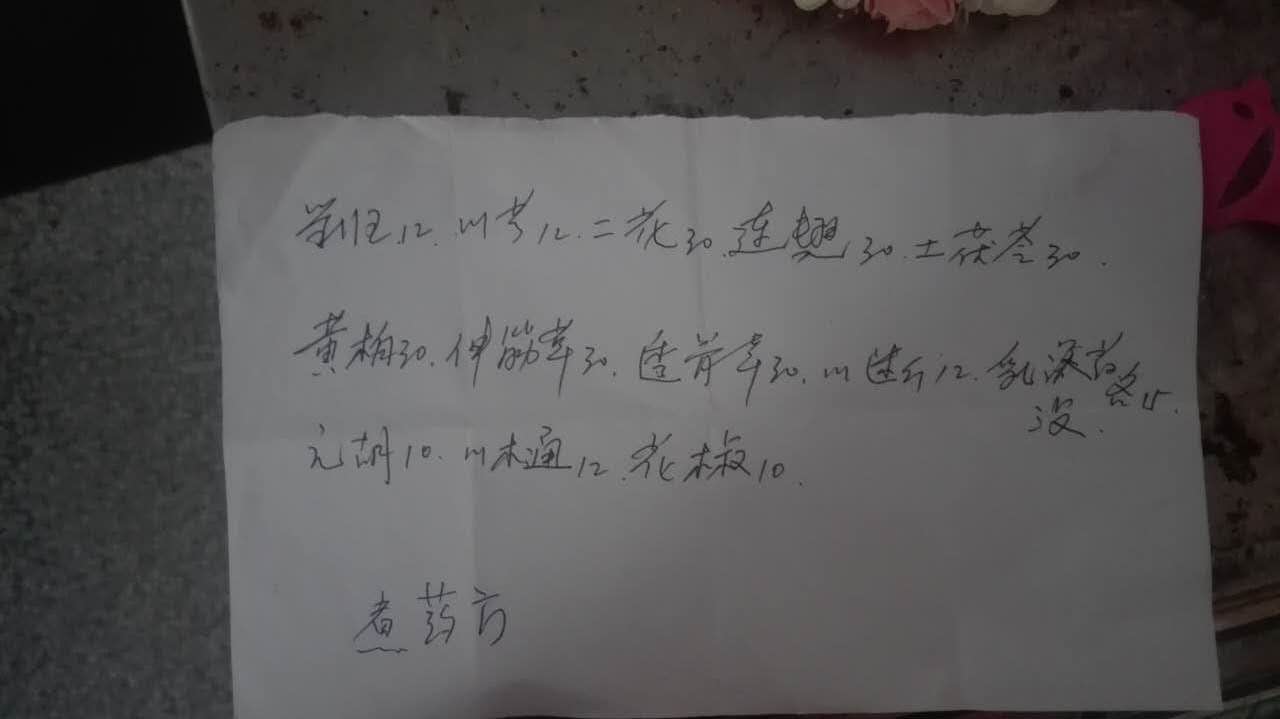 当归12.川芎12.二花30.连翘30.土茯苓30.
黄柏30.伸筋草30.透骨草30.川12.乳没各15.
元胡10.川木通12.花椒10.
煮药方